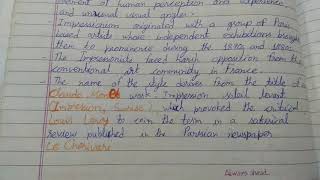 ovement of human perception and experience
and unusual visual angles.
- Impressionism originated with a group of Paris
based artists whose independent exhibitions brought
them to prominence during the 1870s and 1880s.
- The Impressionists faced harsh opposition from the
conventional art community in France
- The name of the style derives from the title of a
Claude Monet work Impression soleil levant
(Impression, Sunrise), which provoked the critic
Louis Leroy to coin the term in a satirical
review published in the Parisian newspaper
Le Charivari
Always ahead...